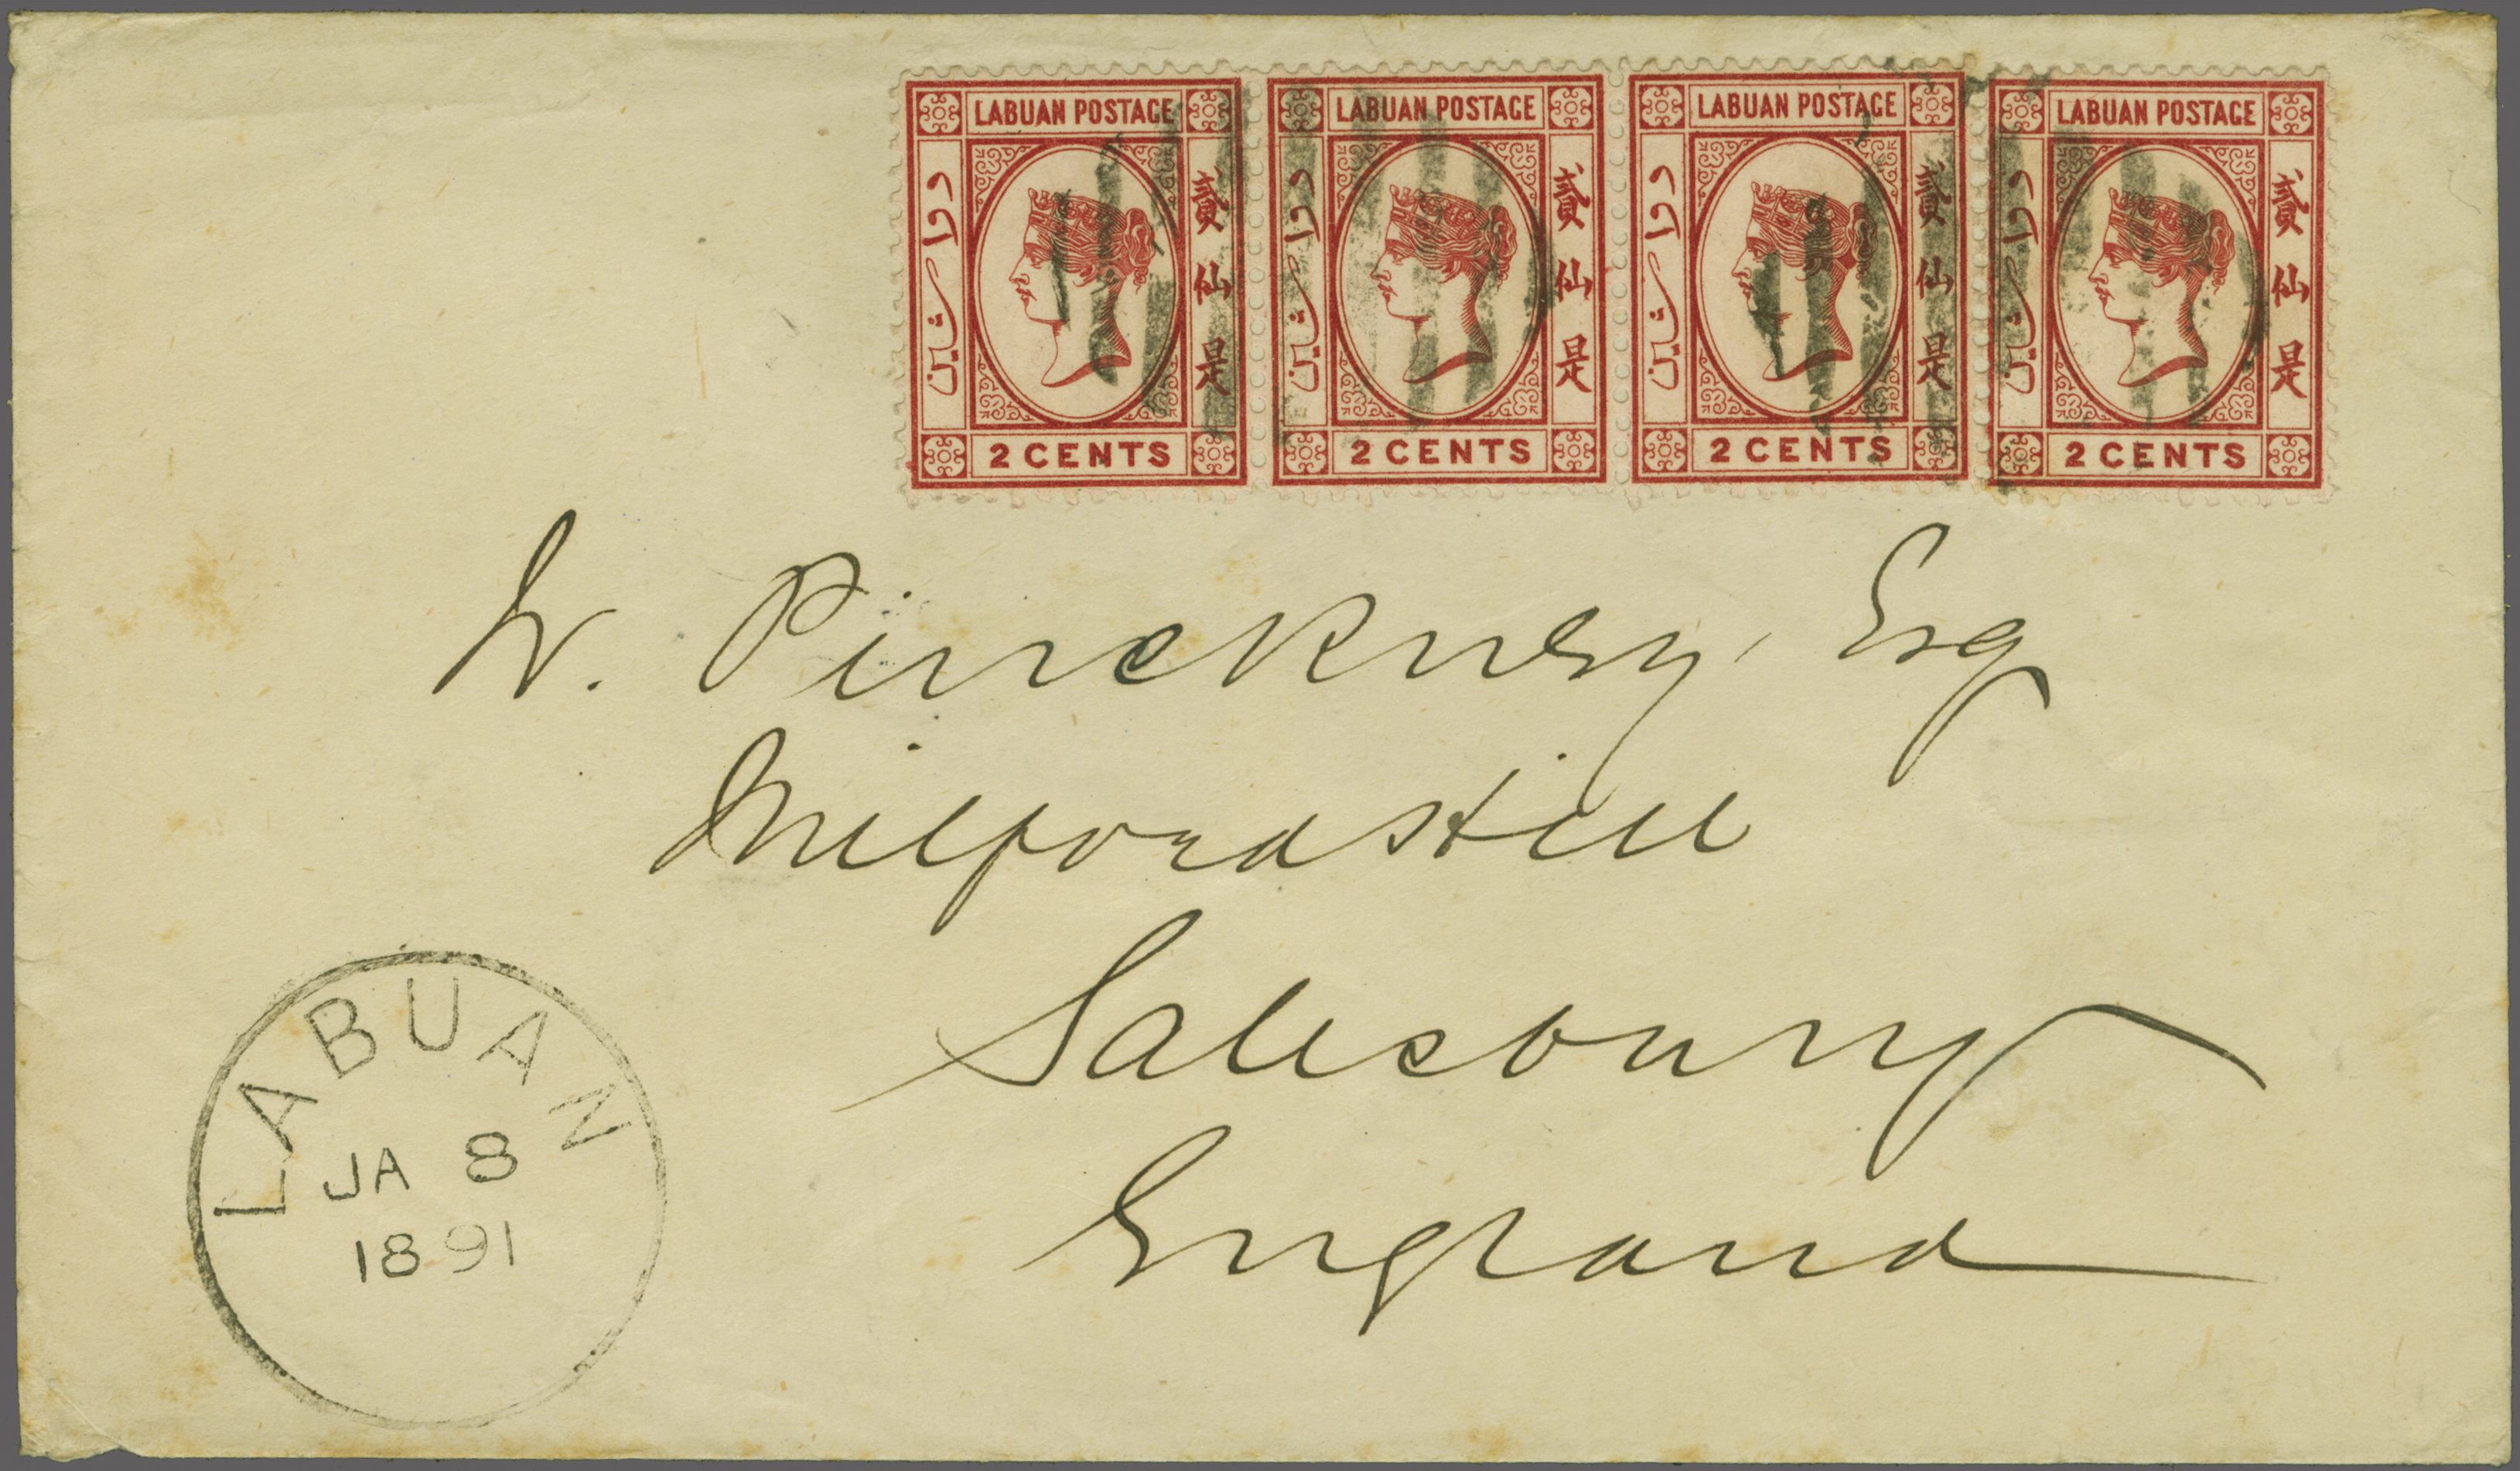 LABUAN POSTAGE LABUAN POSTAGE LABUAN POSTAGE LABUAN POSTAGE
دوا سين 貳仙是 دوا سين 貳仙是 دوا سين 貳仙是 دوا سين 貳仙是
2 CENTS 2 CENTS 2 CENTS 2 CENTS
W. Pinckney, Esq
Milford Hill
Salisbury
England
LABUAN
JA 8
1891